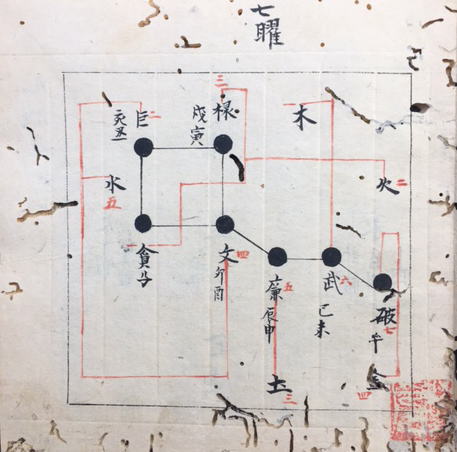 七曜
巨 二
亥丑
禄 三
戌寅
木
火 二
水 五
貪子
文 四
卯酉
廉 五
辰申
武 六
巳未
破 七
午
土 三
金 四